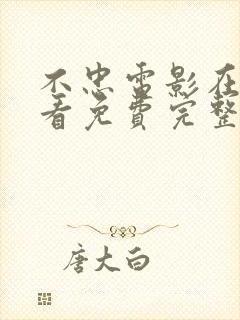 不忠電影在
看免費完整
唐大白